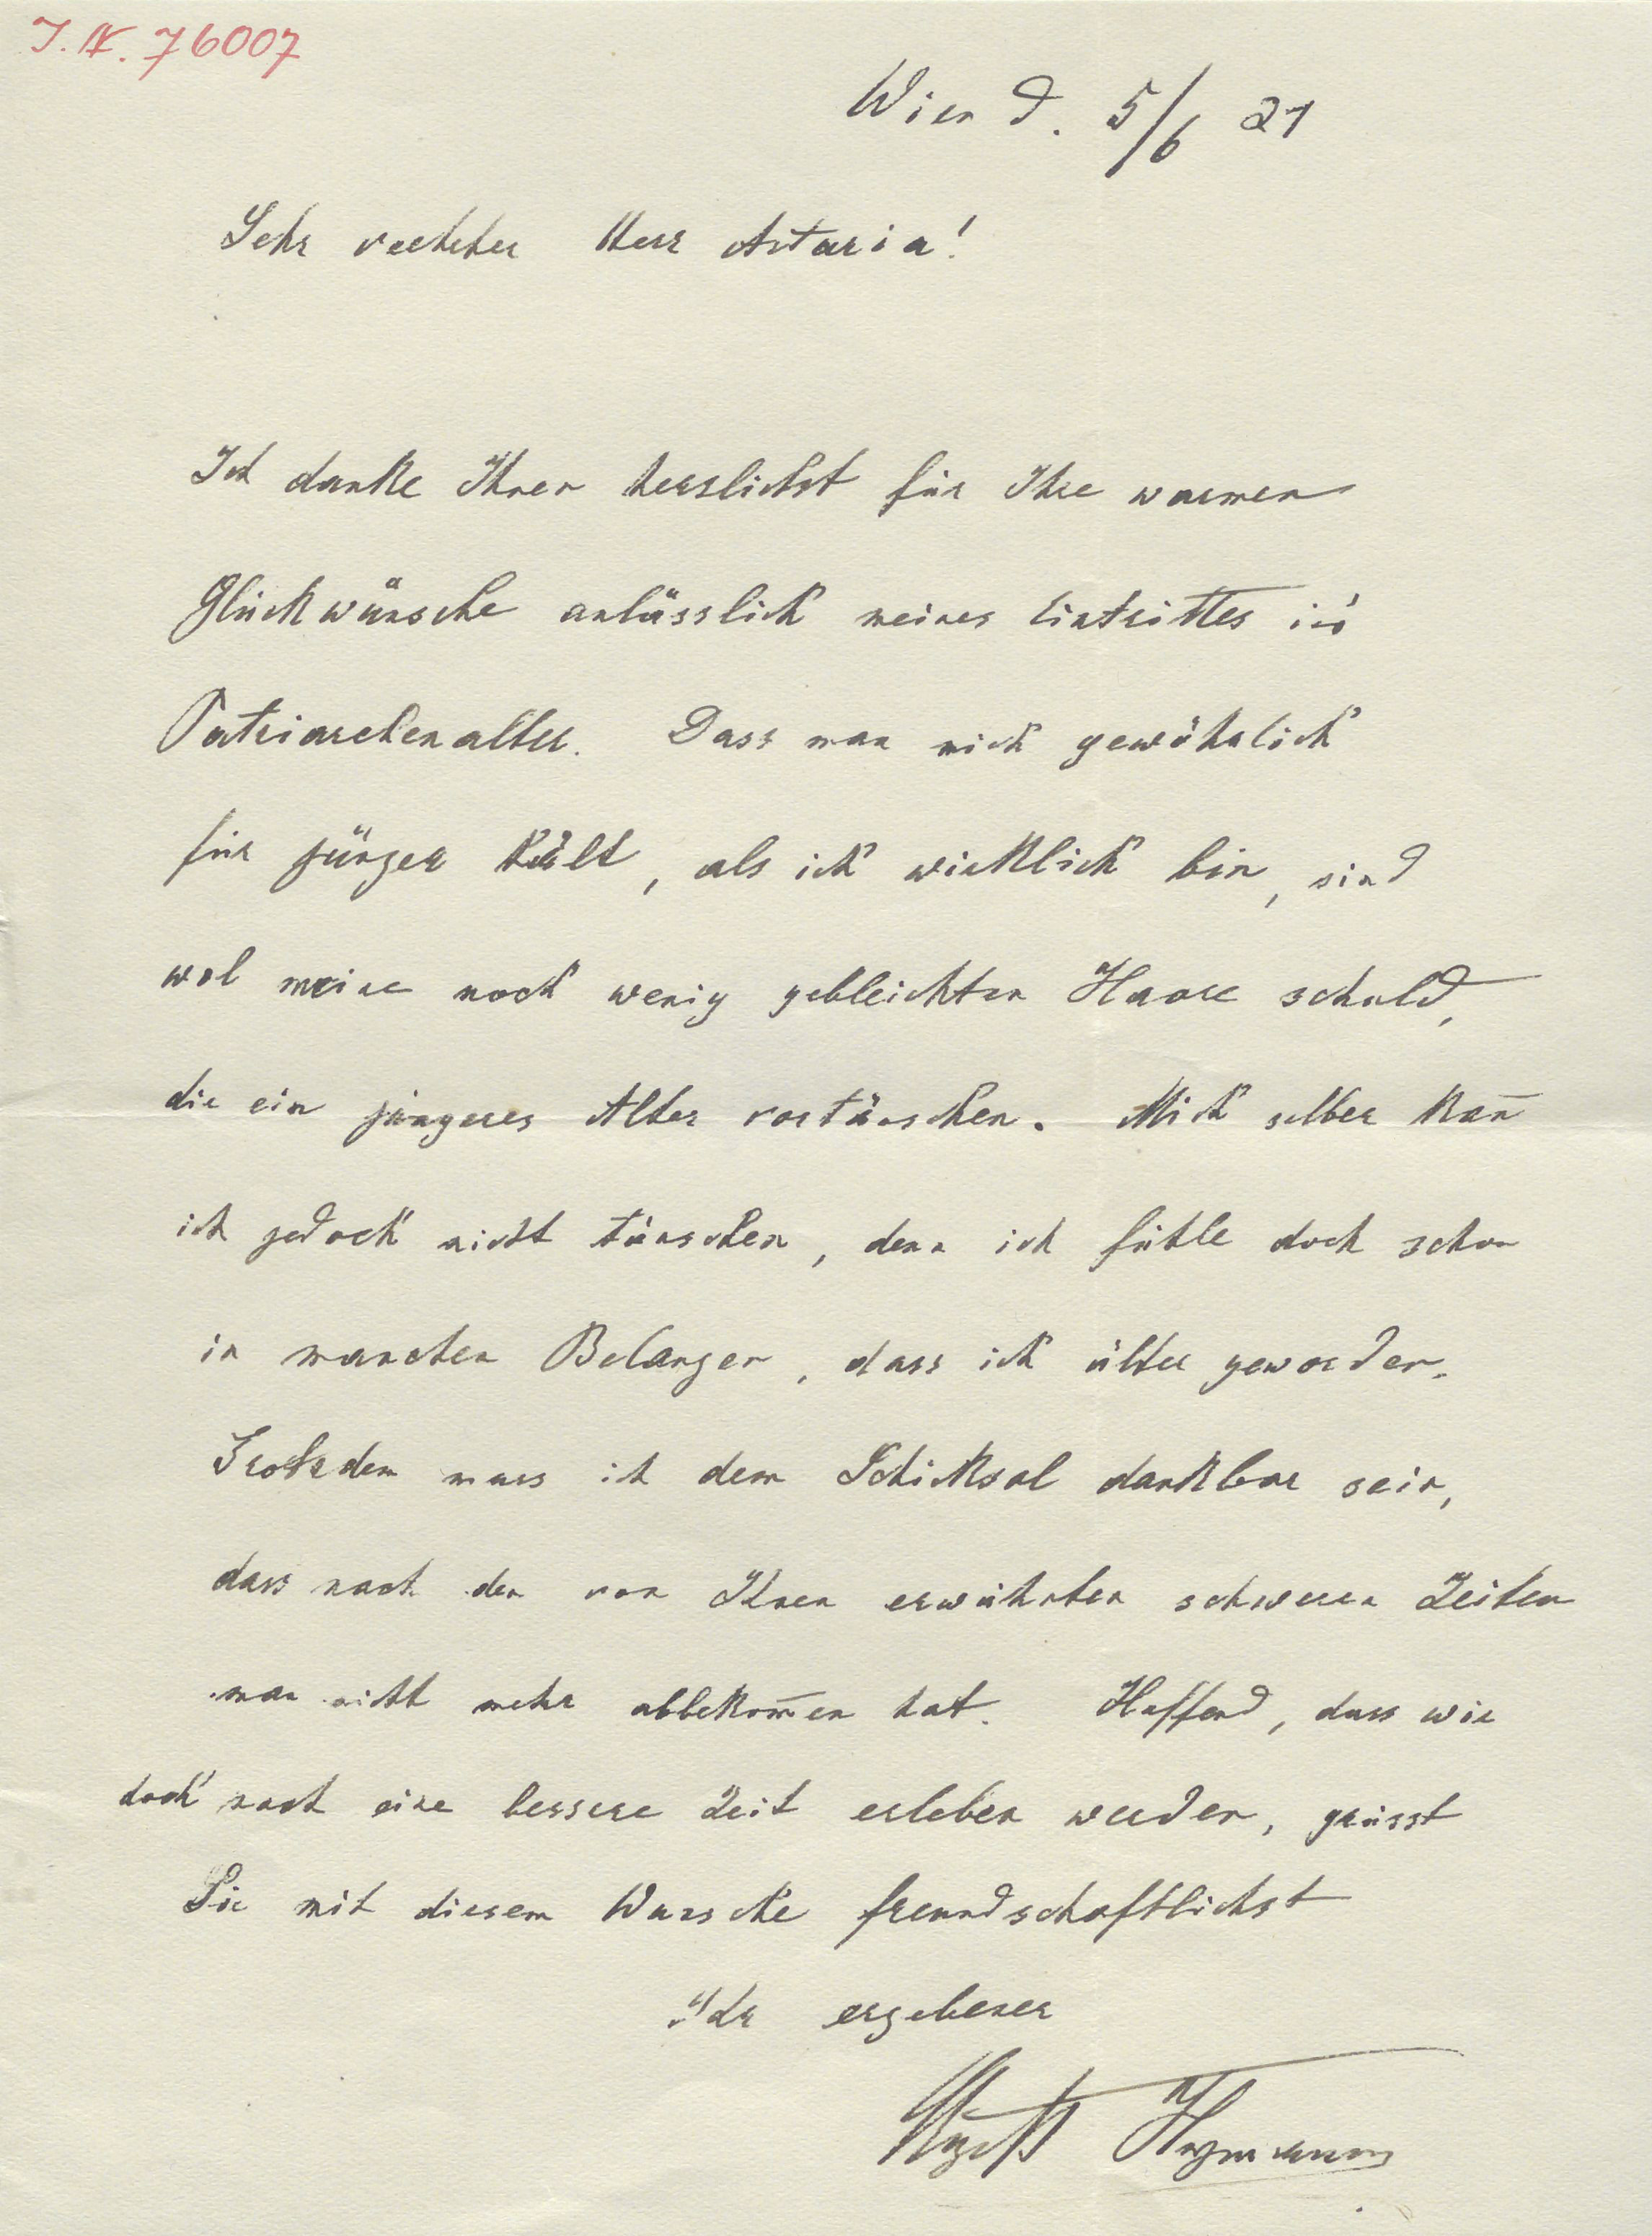 J. N. 76007
Wien d. 5/6 21
Sehr verehrter Herr Artaria!
Ich danke Ihnen herzlichst für Ihre warmen
Glückwünsche anlässlich meines Eintrittes in's
Patriarchenalter. Dass man mich gewöhnlich
für jünger hält, als ich wirklich bin, sind
wol meine noch wenig gebleichten Haare schuld,
die ein jüngeres Alter vortäuschen. Mich selber kan̄
ich jedoch nicht täuschen, denn ich fühle doch schon
in manchen Belangen, dass ich älter geworden.
Trotzdem muss ich dem Schicksal dankbar sein,
dass nach den von Ihnen erwähnten schweren Zeiten
man nicht mehr abbekom̄en hat. Hoffend, dass wir
doch noch eine bessere Zeit erleben werden, grüsst
Sie mit diesem Wunsche freundschaftlichst
Ihr ergebener